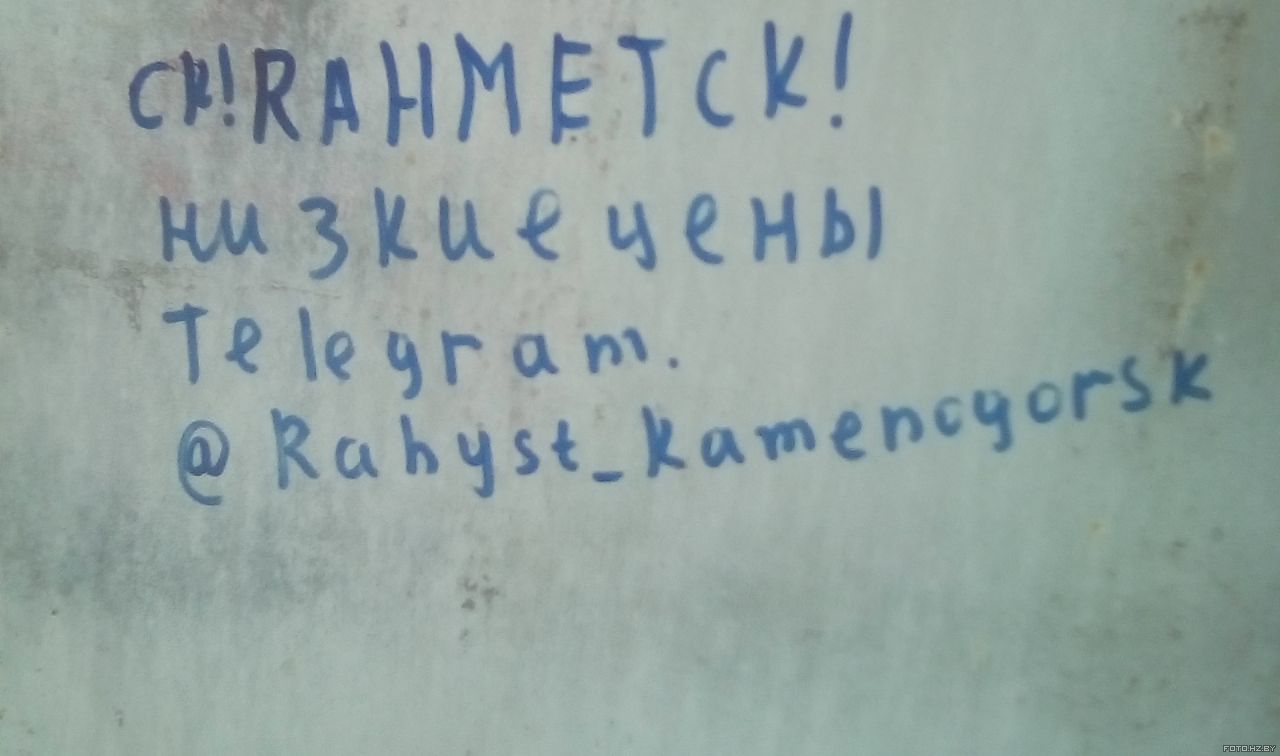 СК!RАНМЕТСК!
низкие цены
Telegram.
@Rahyst_kamenogorsk
FOTO.HZ.BY